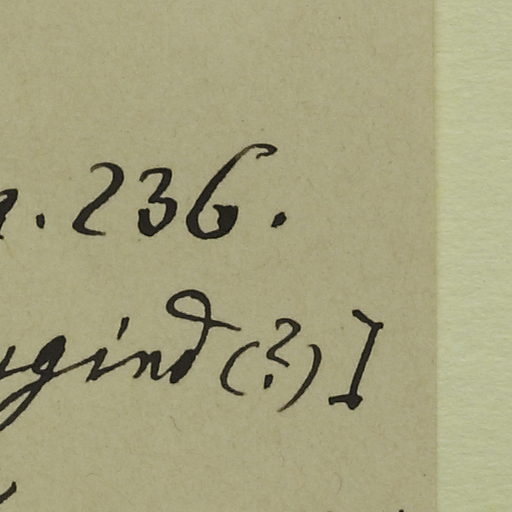 . 236.
ugind (?)]